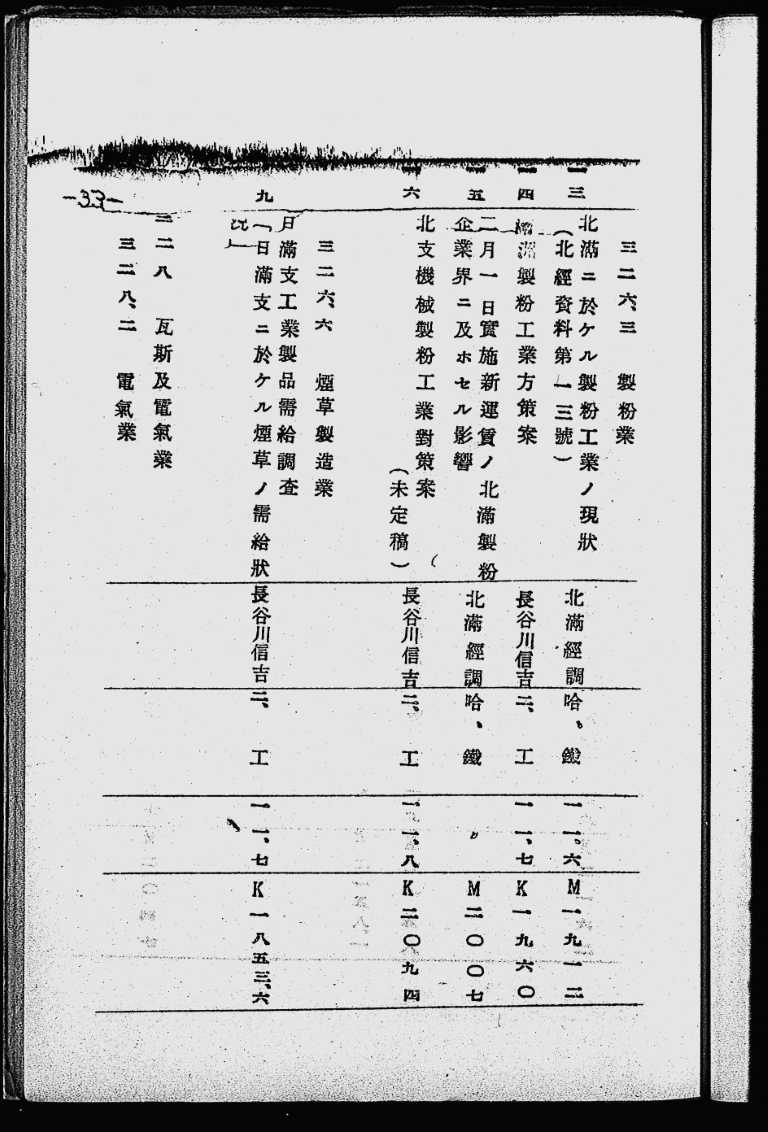 三二六、三 製粉業
一三 北滿ニ於ケル製粉工業ノ現狀 北滿經調 哈、鐵 一一、六 M一九一二
(北經資料第一三號)
一四 滿製粉工業方策案 長谷川信吉 二、工 一一、七 K一九六〇
一五 二月一日實施新運賃ノ北滿製粉 北滿經調 哈、鐵 〃 M二〇〇七
企業界ニ及ホセル影響
一六 北支機械製粉工業對策案 長谷川信吉 二、工 一一、八 K二〇九四
(未定稿)
三二六、六 煙草製造業
九 日滿支工業製品需給調査
「日滿支ニ於ケル煙草ノ需給狀 長谷川信吉 二、工 一一、七 K一八五三、六
況」
三二八 瓦斯及電氣業
三二八、二 電氣業
-33-